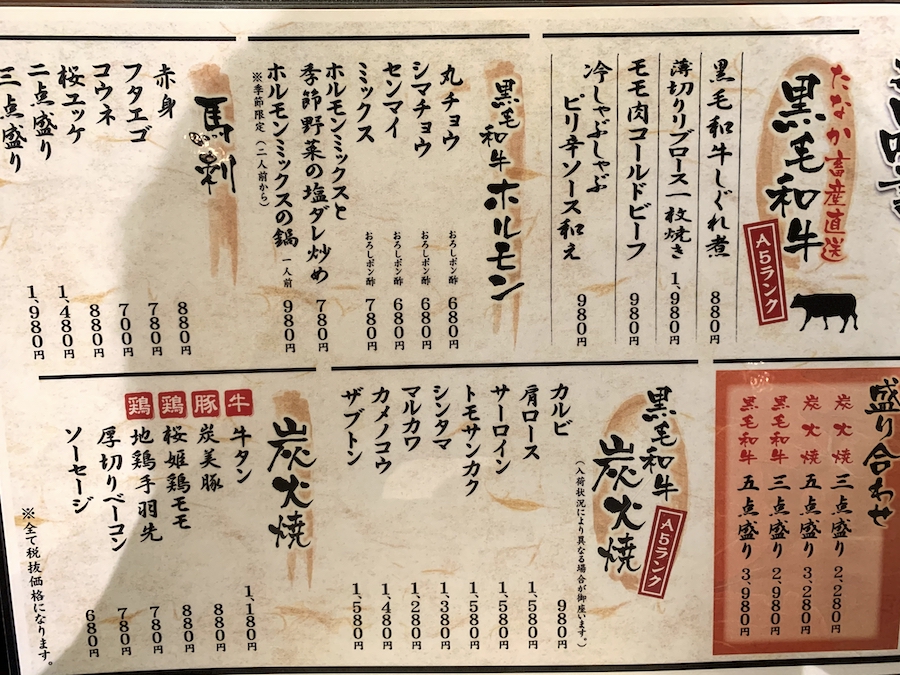 たなか畜産直送
黒毛和牛
A5ランク
黒毛和牛しぐれ煮 880円
薄切りリブロース一枚焼き 1,980円
モモ肉コールドビーフ 980円
冷しゃぶしゃぶ
ピリ辛ソース和え 980円
黒毛和牛ホルモン
丸チョウ おろしポン酢 680円
シマチョウ おろしポン酢 680円
センマイ おろしポン酢 680円
ミックス おろしポン酢 780円
ホルモンミックスと
季節野菜の塩ダレ炒め 780円
ホルモンミックスの鍋 一人前 980円
※季節限定(二人前から)
馬刺
赤身 880円
フタエゴ 780円
コウネ 700円
桜エッケ 880円
二点盛り 1,480円
三点盛り 1,980円
盛り合わせ
炭火焼 三点盛り 2,280円
炭火焼 五点盛り 3,280円
黒毛和牛 三点盛り 2,980円
黒毛和牛 五点盛り 3,980円
黒毛和牛
炭火焼
A5ランク
(入荷状況により異なる場合が御座います。)
カルビ 980円
肩ロース 1,580円
サーロイン 1,580円
トモサンカク 1,580円
シンタマ 1,380円
マルカワ 1,280円
カメノコウ 1,480円
ザブトン 1,580円
炭火焼
牛 牛タン 1,180円
豚 炭美豚 880円
鶏 桜姫鶏モモ 880円
鶏 地鶏手羽先 780円
厚切りベーコン 780円
ソーセージ 680円
※全て税抜価格になります。